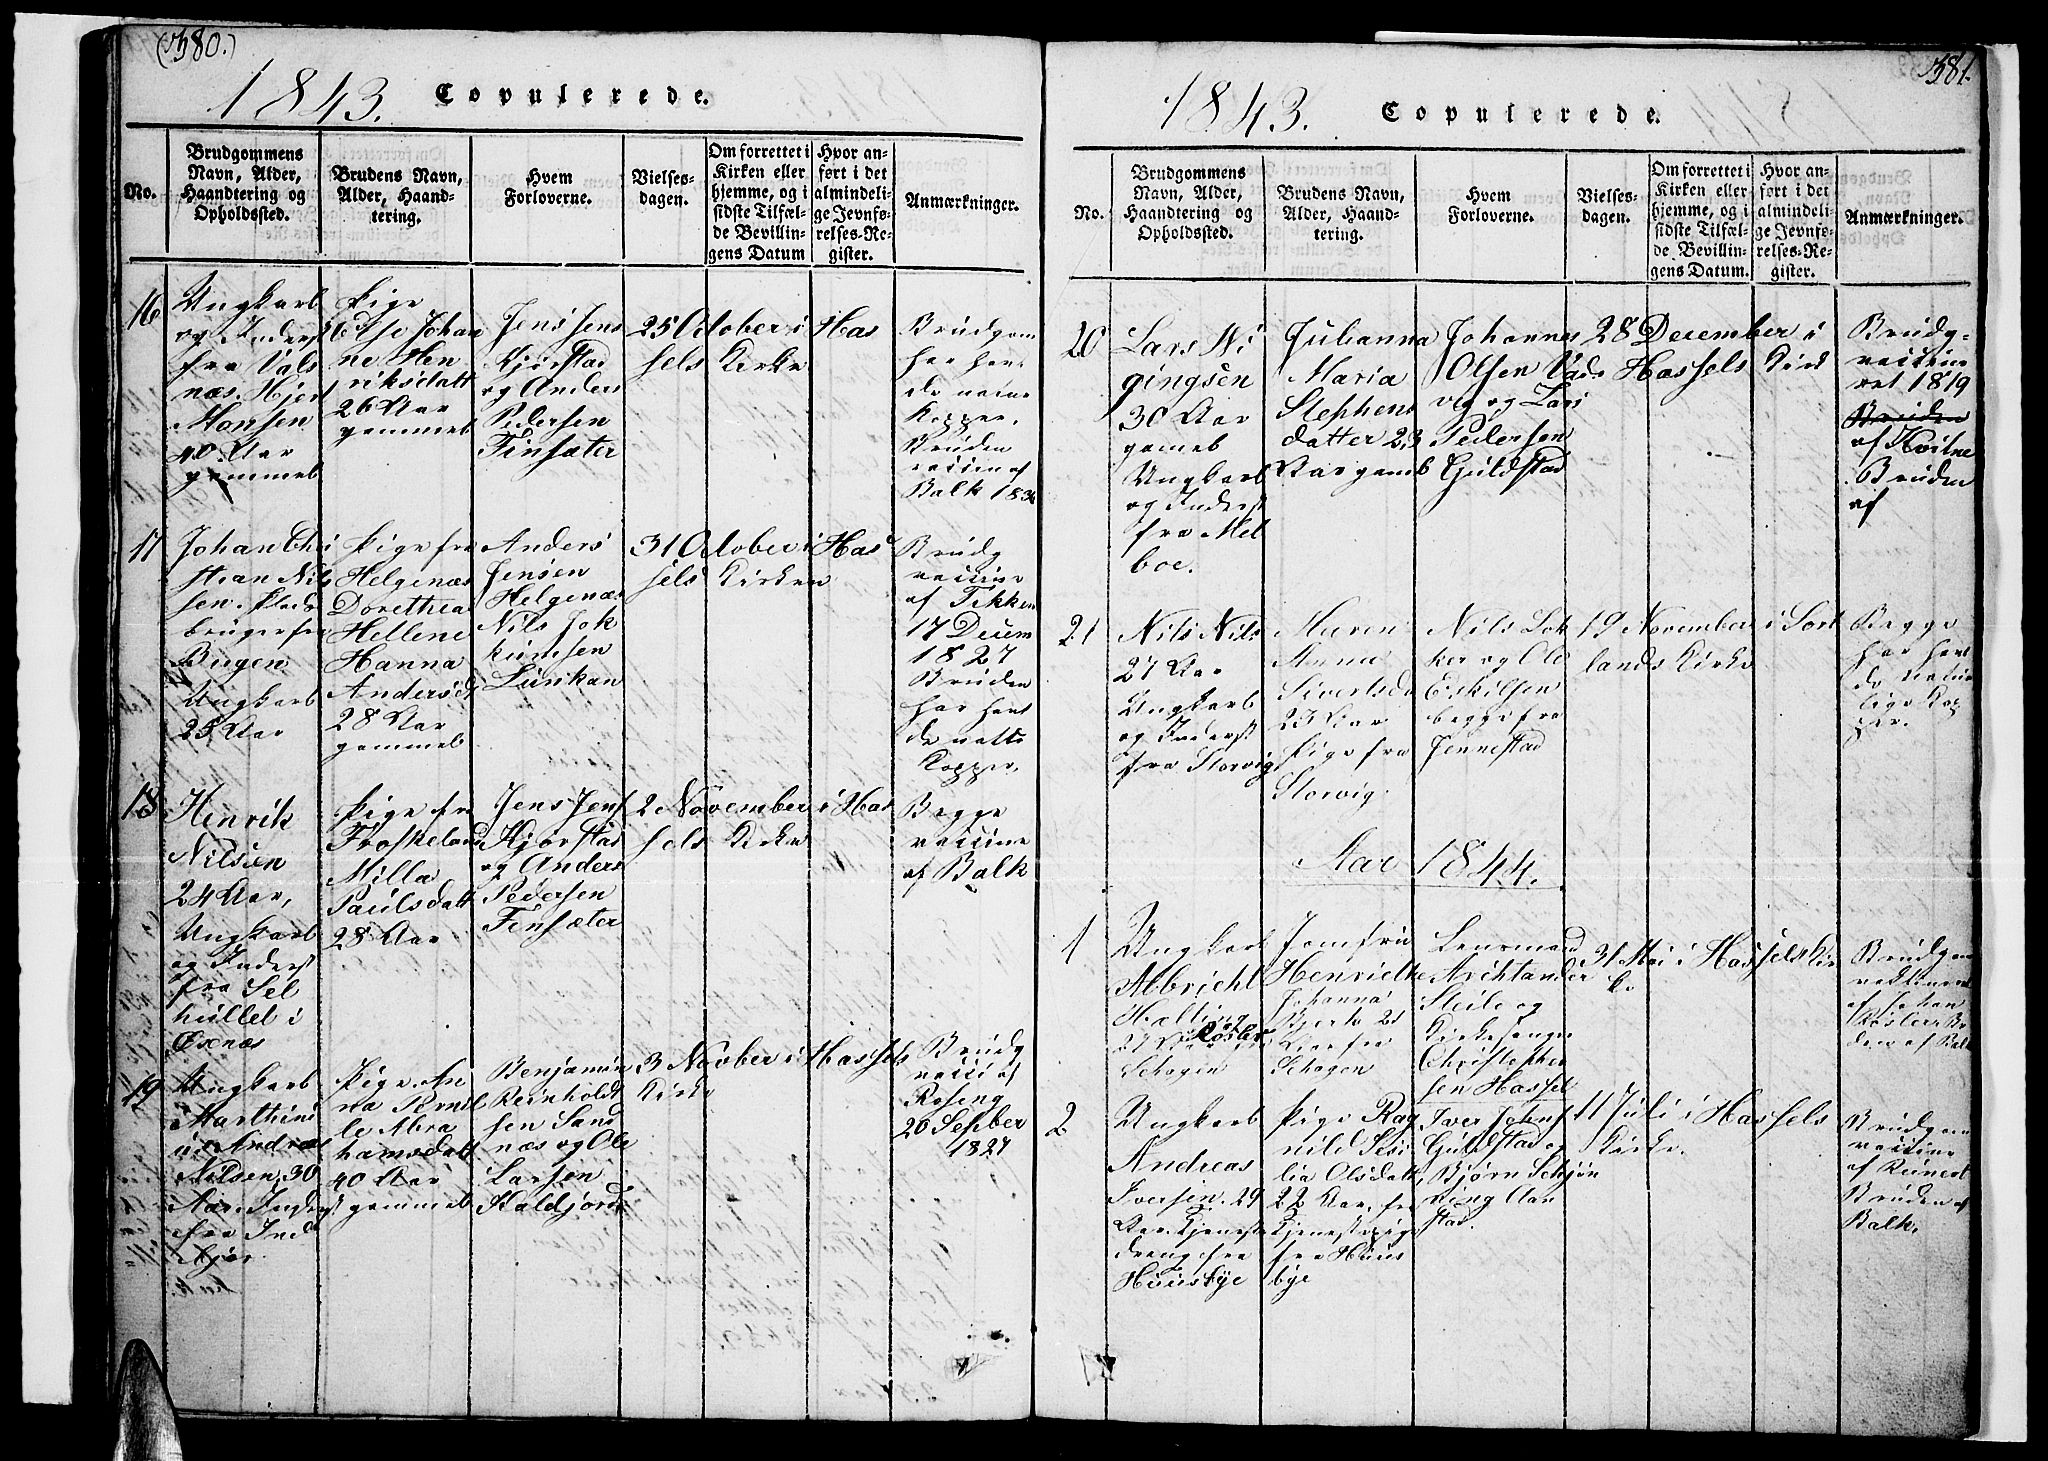 (380.)
1843. Copulerede.
No.
Brudgommens
Navn, Alder,
Haandtering og
Opholdssted.
Brudens Navn,
Alder, Haand-
tering.
Hvem
Forloverne.
Vielses-
dagen.
Om forrettet i
Kirken eller
hjemme, og i
sidste Tilfæl-
de Bevillin-
gens Datum
Hvor an-
ført i det
almindeli-
ge Jevnfø-
relses-Re-
gister.
Anmærkninger.
16
Ungkarl
og Inderst
fra Vals
næs
Monsen
40 Aar
gammel
Pige
Else Johan
ne Hen
riksdatt
26 Aar
gammel
Jens Jens
Kjørstad
og Anders
Pedersen
Finsæter
25 October i Has
sels Kirke
Brudgom
har hav
de
Kopper.
Bruden
vaccine af
Balk
17
Johan Chri
stian Nils
sen. Plads
bruger fra
Bugen
Ungkarl
25 Aar
Pige fra
Helgenæs
Dorethea
Hellene
Hanna
Andersd
28 Aar
gammel
Anders
Jensen
Helgenæs
Nils Jok
kumsen
Lunkan
31 October i Has
sels Kirken
Brudg
vaccine
af Tekken
17 Decem
1827
Bruden
har hav
de natte
Kopper.
18
Henrik
Nilssen
24 Aar,
Ungkarl
og Inderst
fra Sel
hullet i
Exnæs
Pige fra
Froskeland
Milla
Paulsdatt
28 Aar
Jens Jens
Kjørstad
og Anders
Pedersen
Finsæter
2 November i Has
sels Kirke
Begge
vaccine
af Balk
19
Ungkarl
Marthini
us Andreas
Nilsen 30
Aar. Inderst
fra Ind
Pige An
na Pernil
le Abra
hamsdatt
40 Aar
gammel
Benjamin
Reinholdt
sen Sand
næs og Ole
Larsen
Kaldjord
3 Novber i Hassels
Kirke
Brudg
vacci af
Rosing
20 Sepber
1827
381.
1843. Copulerede.
No.
Brudgommens
Navn, Alder,
Haandtering og
Opholdssted.
Brudens Navn,
Alder, Haand-
tering.
Hvem
Forloverne.
Vielses-
dagen.
Om forrettet i
Kirken eller
hjemme, og i
sidste Tilfæl-
de Bevillin-
gens Datum.
Hvor an-
ført i det
almindeli-
ge Jevnfø-
relses-Re-
gister.
Anmærkninger.
20
Lars Ni
gingsen
30 Aar
gamel
Ungkarl
og Inderst
fra Mel
boe.
Julianna
Maria
Stephens
datter 23
Aar gaml
Johannes
Olsen Vads
vig og Lars
Pedersen
Guldstad
28 December i
Hassels Kirk
Brudg-
vaccine
ret 1819
Bruden
af Kvitne
Bruden
af
21
Nils Nils
27 Aar
Ungkarl
og Inderst
fra Storvig
Maren
Anna
Sivertsd
23 Aar
Pige fra
Storvig
Nils Lok
ker og Ole
Eskilsen
begge fra
Jennestad
19 November i Sort
lands Kirke
Begge
har hav
de natur
lige Kop
per.
Aar 1844.
1
Ungkarl
Albricht
Holting
Røsler
27 Aar fra
Schogen
Jomfru
Henriethe
Johanna
Bjerk 21
Aar fra
Schogen
Lensmand
Arihtander
Steile og
Kirkesanger
Christophen
sen Hassel
31 Mai i Hasselskir
ke
Brudgom
vaktineret
af Johan
Røsler Br
den af Balk
2
Ungkarl
Andreas
Iversen 29
Aar. Tjeneste
dreng fra
Huusbye
Pige Rag
nild Sesi
lia Olsdatt,
22 Aar, fra
Tjenestepige
fra Huus
bye
Iver Jens
Guldstad og
Bjørn Schjøn
ning Aan
stad.
11 Juli i Hassels
Kirke.
Brudgom
vaccine
af Reinert
Bruden af
Balk.